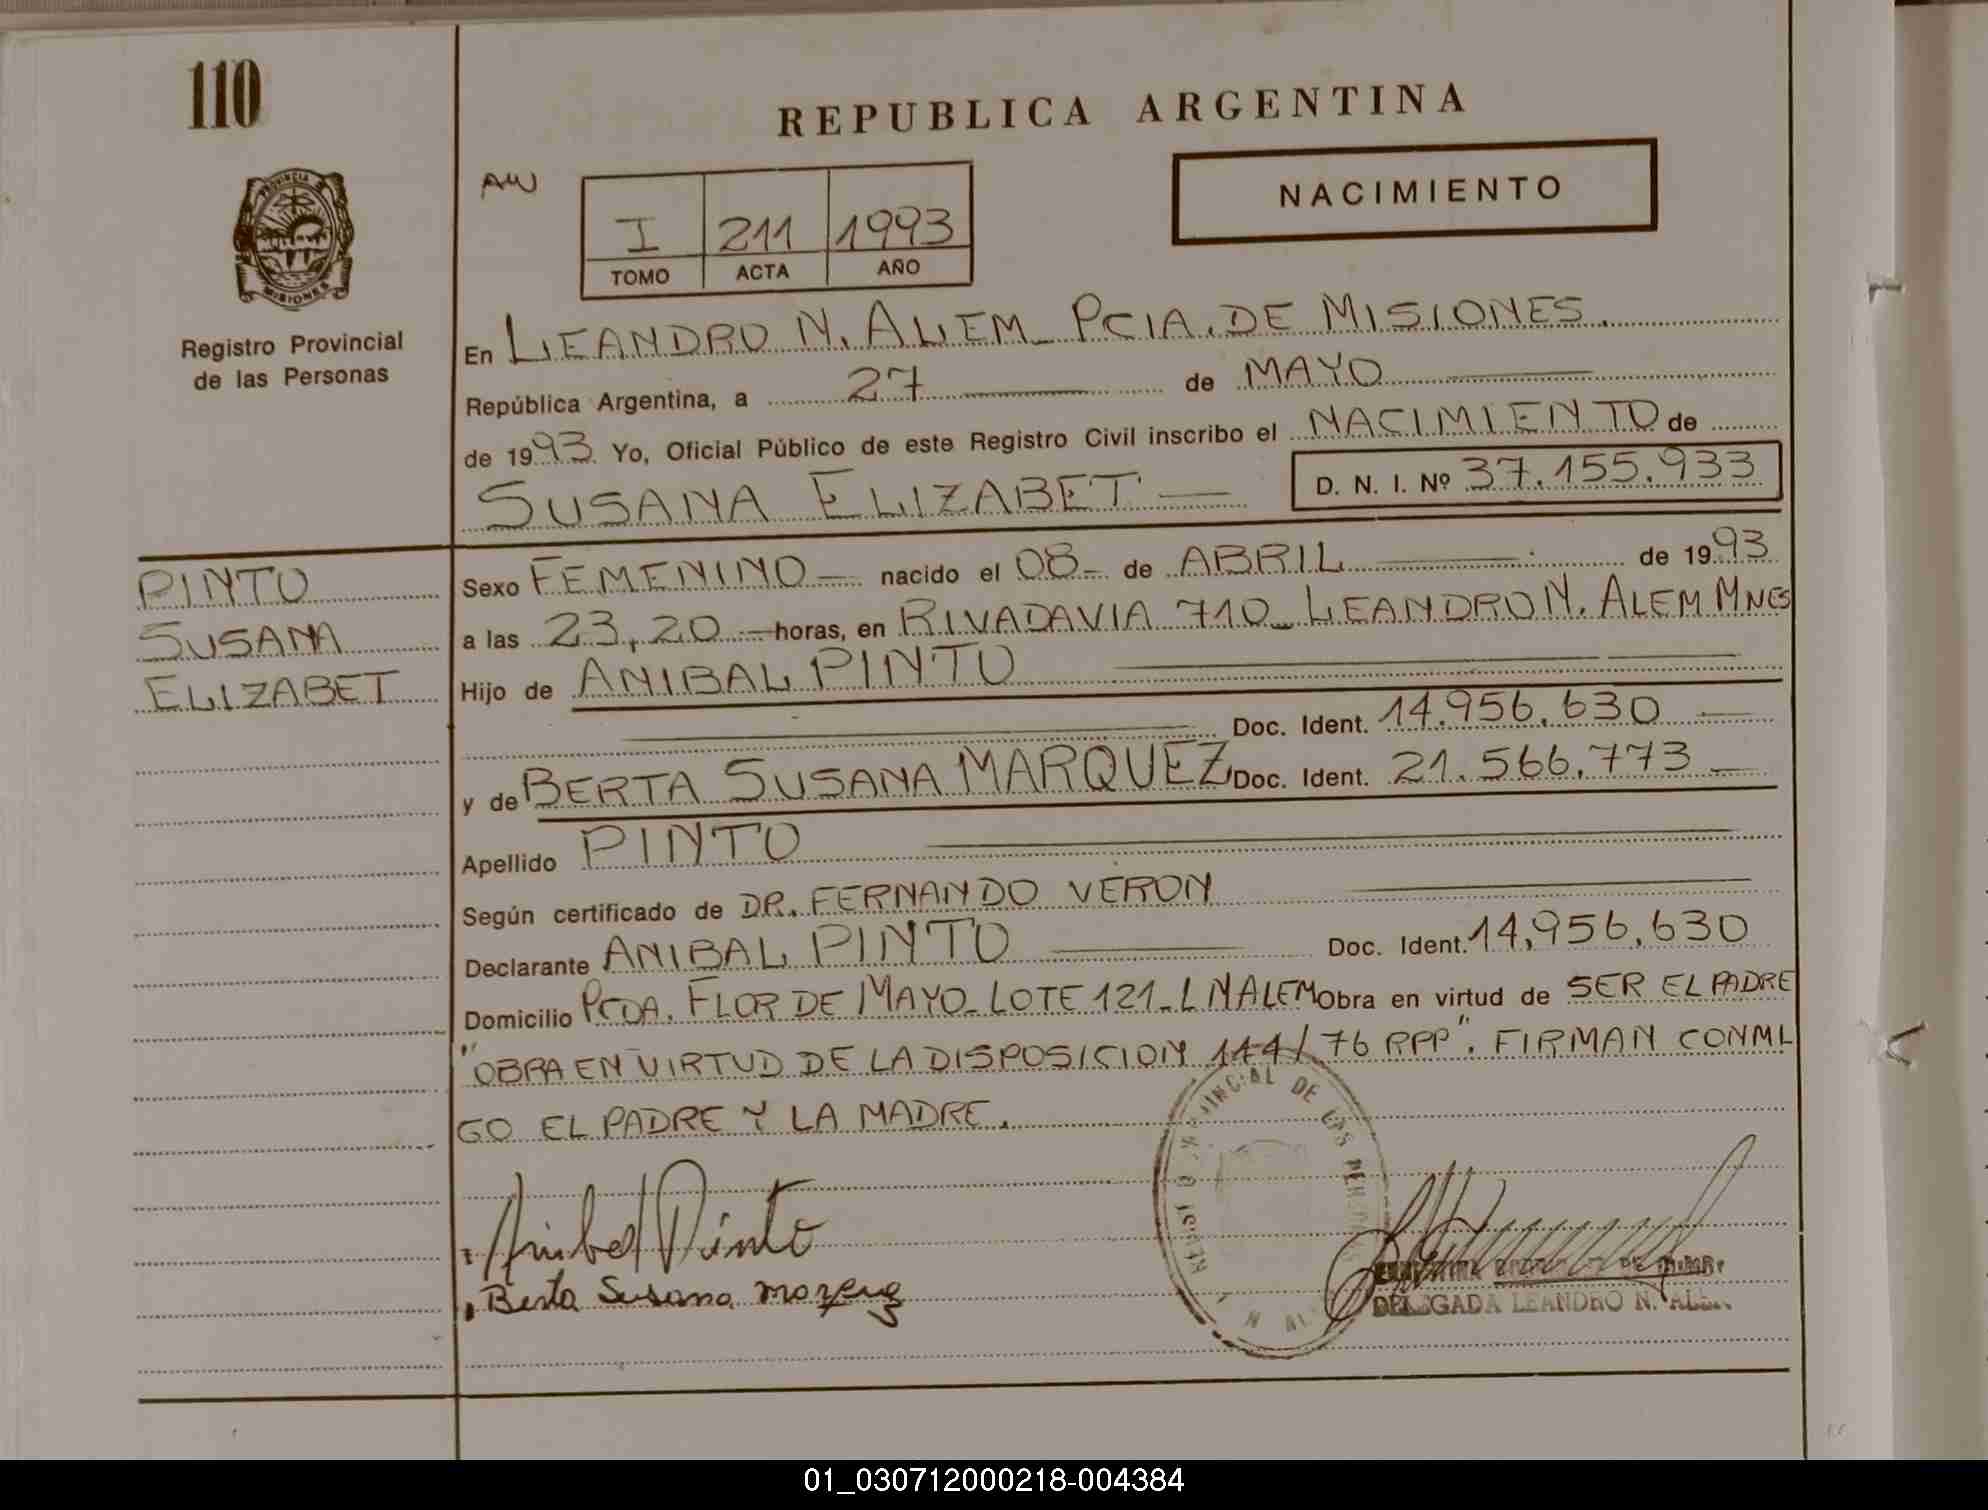 110
REPUBLICA ARGENTINA
AW
NACIMIENTO
I 211 1993
TOMO ACTA AÑO
PROVINCIA
MISIONES
Registro Provincial
de las Personas
En LEANDRO N. ALEM_ PCIA. DE MISIONES.
República Argentina, a 27 de MAYO
de 1993. Yo, Oficial Público de este Registro Civil inscribo el NACIMIENTO de
SUSANA ELIZABET — D. N. I. Nº 37.155.933
PINTO
SUSANA
ELIZABET
Sexo FEMENINO — nacido el 08_ de ABRIL de 1993
a las 23,20 — horas, en RIVADAVIA 710_ LEANDRO N. ALEM MNES
Hijo de ANIBAL PINTO
Doc. Ident. 14.956.630 —
y de BERTA SUSANA MARQUEZ Doc. Ident. 21.566.773 —
Apellido PINTO
Según certificado de DR. FERNANDO VERON
Declarante ANIBAL PINTO — Doc. Ident. 14,956,630
Domicilio PCDA. FLOR DE MAYO_ LOTE 121_ L N ALEM Obra en virtud de SER EL PADRE
"OBRA EN VIRTUD DE LA DISPOSICION 144/76 RPP". FIRMAN CONMI
GO EL PADRE Y LA MADRE.
DE LAS
Anibal Pinto
Berta Susana
DELEGADA LEANDRO N. ALEM
01_030712000218-004384